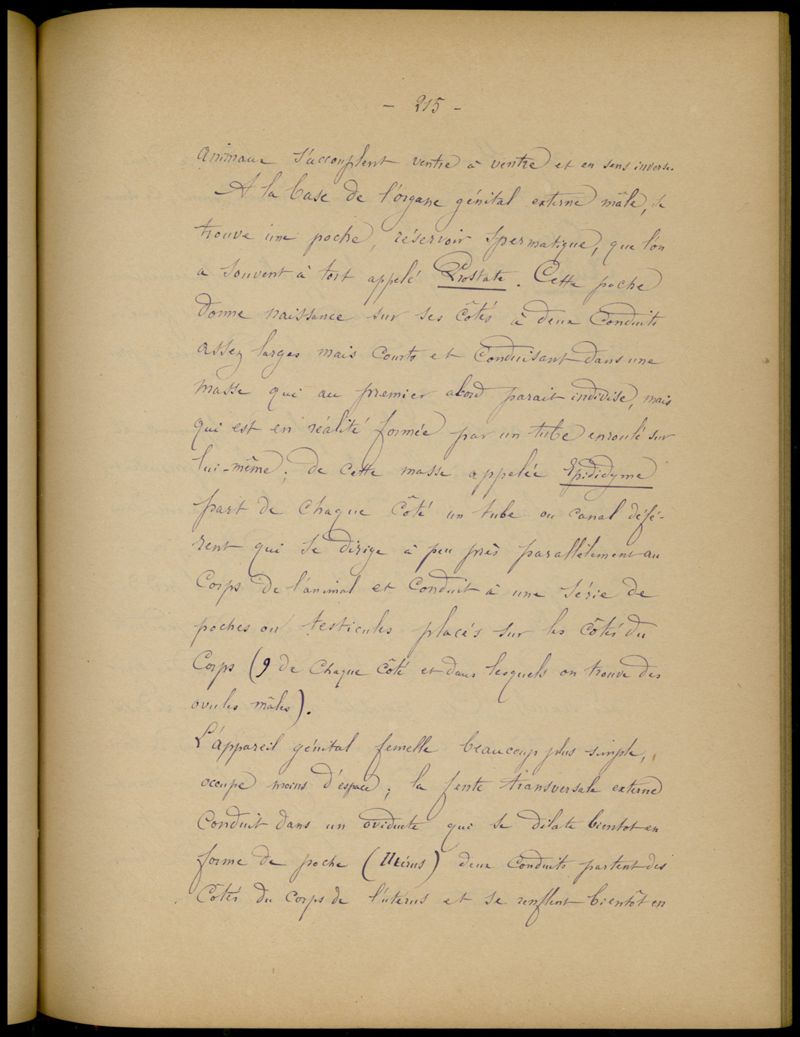 - 215 -
animaux s'accouplent ventre à ventre et en sens inverse.
A la base de l'organe génital externe mâle, se
trouve une poche, réservoir spermatique, que l'on
a souvent à tort appelé Prostate. Cette poche
donne naissance sur ses côtés à deux conduits
assez larges mais courts et conduisant dans une
masse qui au premier abord parait indivise, mais
qui est en réalité formée par un tube enroulé sur
lui-même; de cette masse appelée Epididyme
part de chaque côté un tube ou canal défé-
rent qui se dirige à peu près parallèlement au
corps de l'animal et conduit à une série de
poches ou testicules placés sur les côtés du
corps (9 de chaque côté et dans lesquels on trouve des
ovules mâles).
L'appareil génital femelle beaucoup plus simple,
occupe moins d'espace; la fente transversale externe
conduit dans un oviducte qui se dilate bientot en
forme de poche (Utérus) deux conduits partent des
côtés du corps de l'utérus et se renflent bientôt en